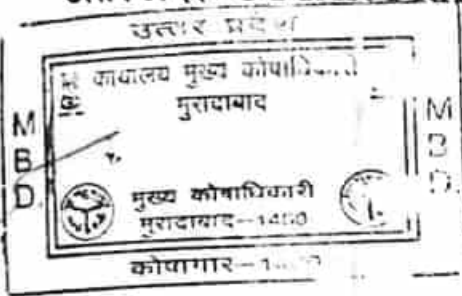 उत्तर प्रदेश
कार्यालय मुख्य कोषाधिकारी
मुरादाबाद
M B D.
M B D.
मुख्य कोषाधिकारी
मुरादाबाद--1400
कोषागार--